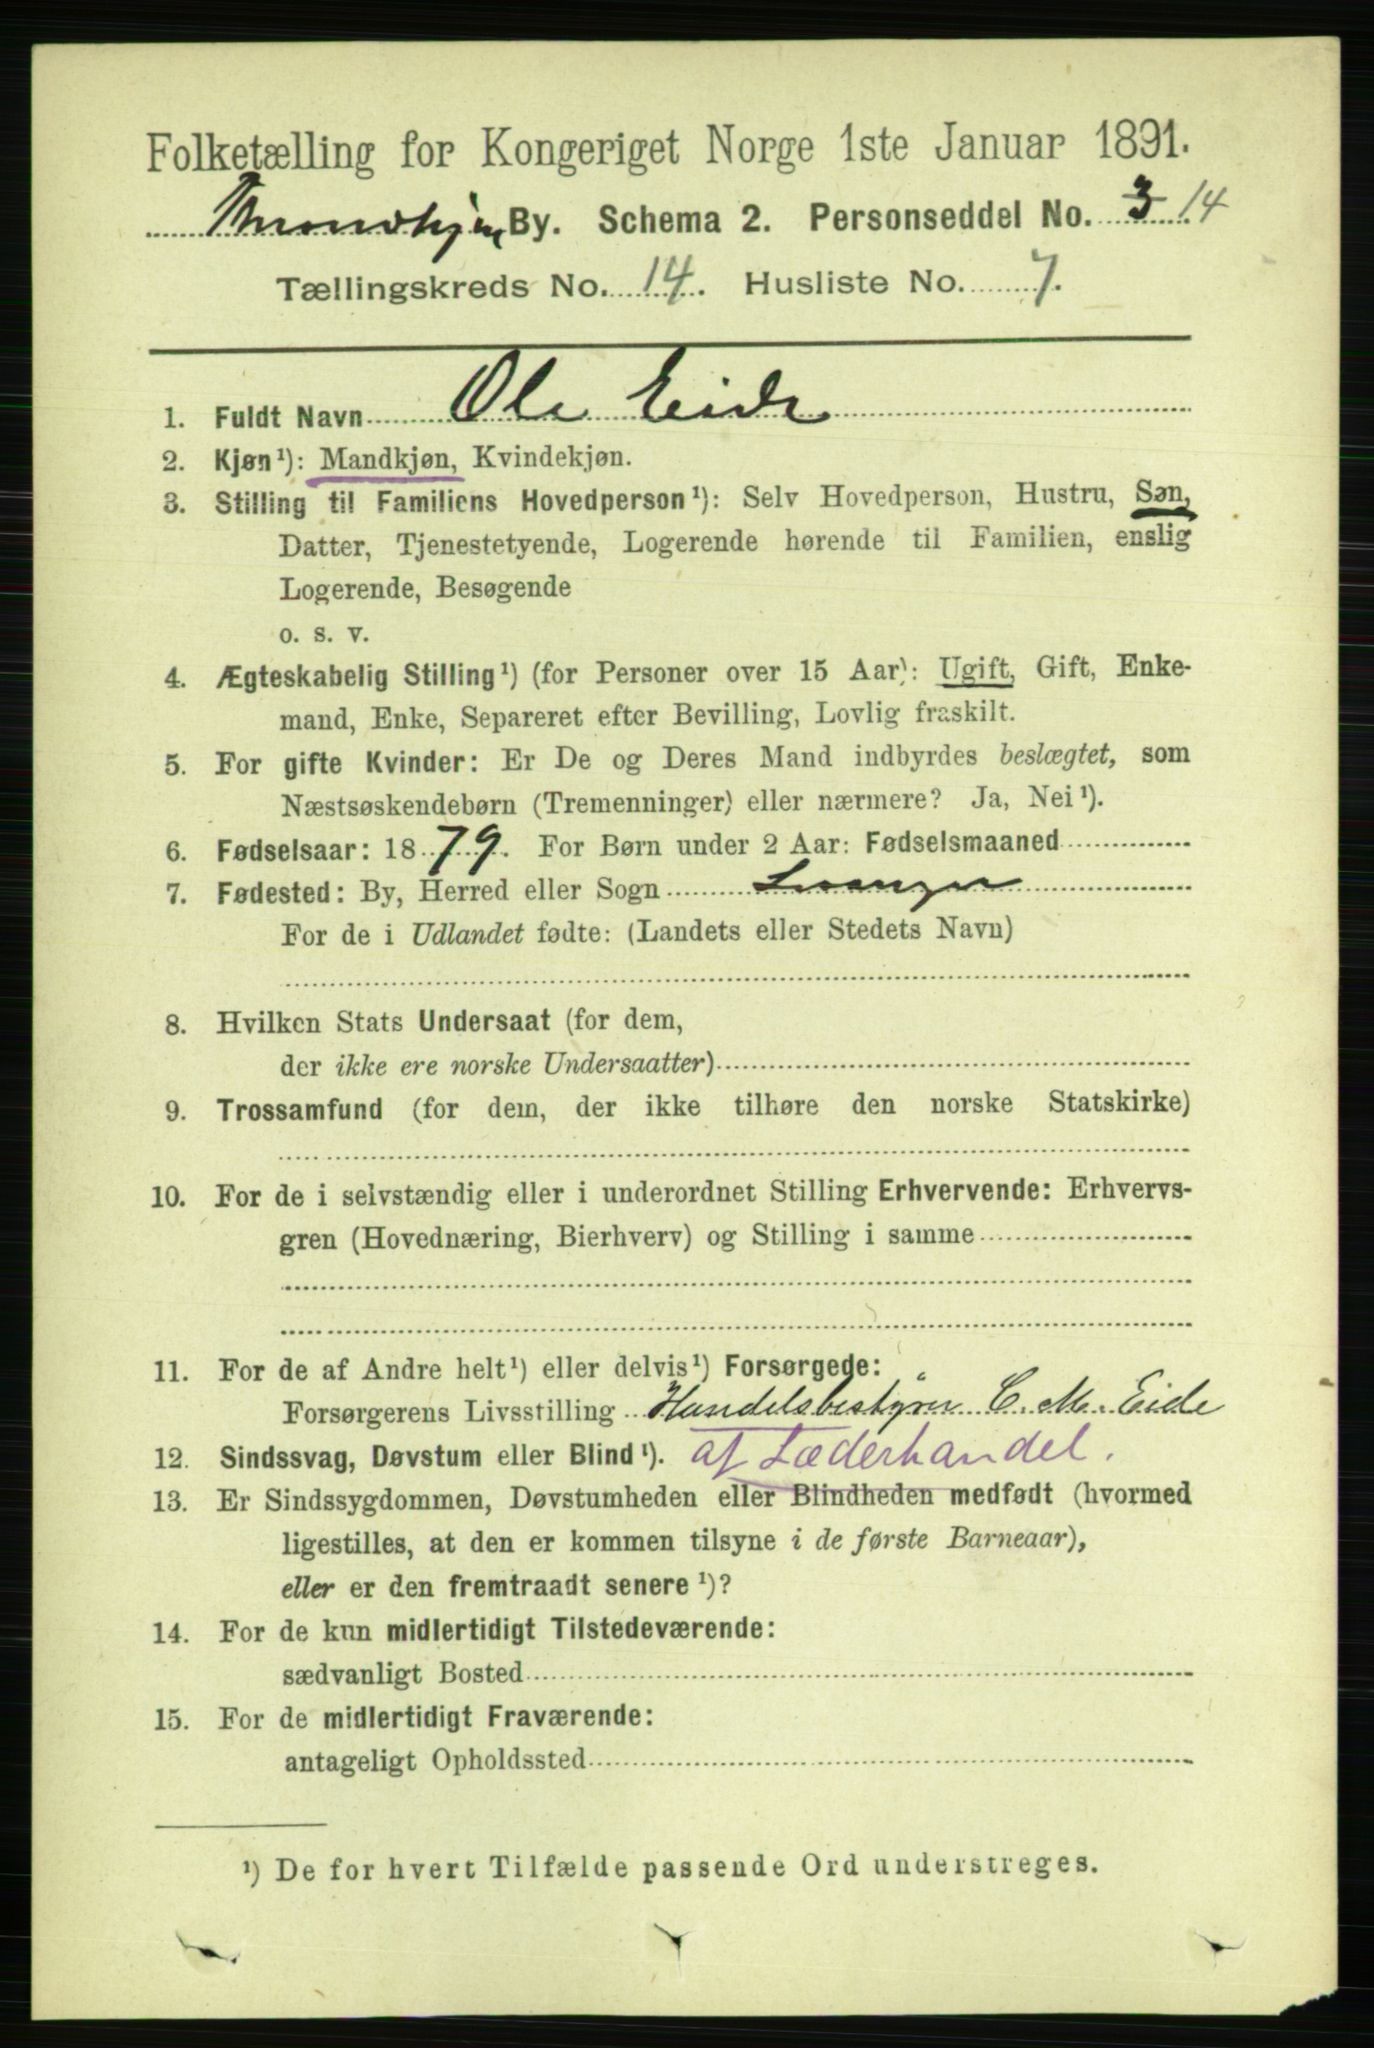 Folketælling for Kongeriget Norge 1ste Januar 1891.
Throndhjem By. Schema 2. Personseddel No. 3 14
Tællingskreds No. 14. Husliste No. 7.
1. Fuldt Navn Ole Eide
2. Kjøn¹): Mandkjøn, Kvindekjøn.
3. Stilling til Familiens Hovedperson¹): Selv Hovedperson, Hustru, Søn,
Datter, Tjenestetyende, Logerende hørende til Familien, enslig
Logerende, Besøgende
o. s. v.
4. Ægteskabelig Stilling¹) (for Personer over 15 Aar): Ugift, Gift, Enke-
mand, Enke, Separeret efter Bevilling, Lovlig fraskilt.
5. For gifte Kvinder: Er De og Deres Mand indbyrdes beslægtet, som
Næstsøskendebørn (Tremenninger) eller nærmere? Ja, Nei¹).
6. Fødselsaar: 1879. For Børn under 2 Aar: Fødselsmaaned
7. Fødested: By, Herred eller Sogn Levanger
For de i Udlandet fødte: (Landets eller Stedets Navn)
8. Hvilken Stats Undersaat (for dem,
der ikke ere norske Undersaatter)
9. Trossamfund (for dem, der ikke tilhøre den norske Statskirke)
10. For de i selvstændig eller i underordnet Stilling Erhvervende: Erhvervs-
gren (Hovednæring, Bierhverv) og Stilling i samme
11. For de af Andre helt¹) eller delvis¹) Forsørgede:
Forsørgerens Livsstilling Handelsbestyrer C. M. Eide
12. Sindssvag, Døvstum eller Blind¹). af Læderhandel.
13. Er Sindssygdommen, Døvstumheden eller Blindheden medfødt (hvormed
ligestilles, at den er kommen tilsyne i de første Barneaar),
eller er den fremtraadt senere¹)?
14. For de kun midlertidigt Tilstedeværende:
sædvanligt Bosted
15. For de midlertidigt Fraværende:
antageligt Opholdssted
¹) De for hvert Tilfælde passende Ord understreges.